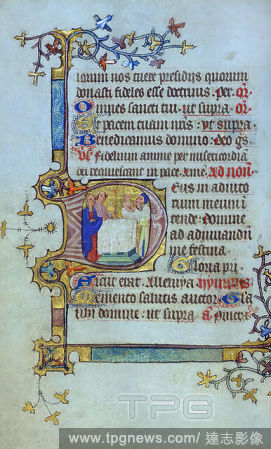 torum nos tuere presidijs quorum
donasti fideles esse doctrinis. Per. Or.
Omnes sancti tui. ut supra. Or.
Et pacem tuam nobis. ut supra
Benedicamus domino. Deo gras.
Fidelium anime per misericordia
dei requiescant in pace. Ame. Ad non.
Deus in adiuto
rium meum i
tende. Domine
ad adiuvandu
me festina.
Gloria pri.
Sicut erat. Alleluya
Memento salutis auctor. Glo
tibi domine. ut supra. a.
TPG
www.tpgnews.com / 達志影像